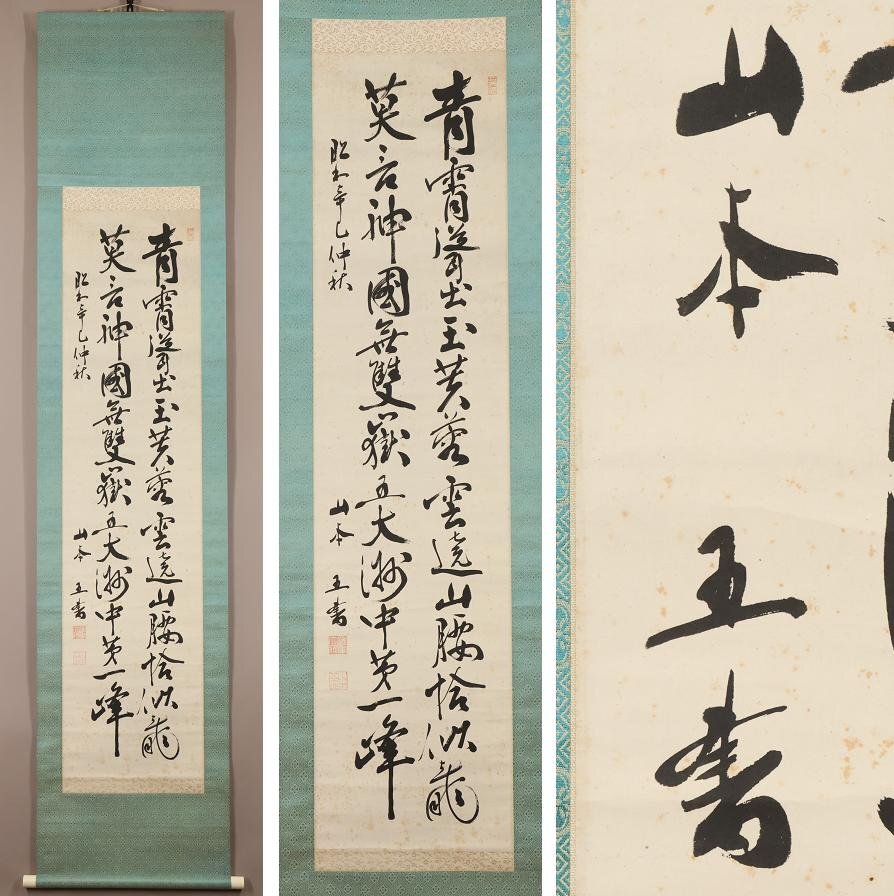 青霄聳出玉芙蓉雲遶山腰恰似龍
莫言神國無雙嶽五大洲中第一峰
昭和辛巳仲秋
山本 五書
青霄聳出玉芙蓉雲遶山腰恰似龍
莫言神國無雙嶽五大洲中第一峰
昭和辛巳仲秋
山本 五書
山本 五書